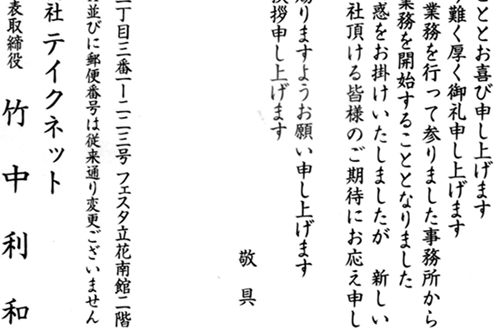 こととお喜び申し上げます
難く厚く御礼申し上げます
業務を行って参りました事務所から
業務を開始することとなりました
惑をお掛けいたしましたが 新しい
社頂ける皆様のご期待にお応え申し
賜りますようお願い申し上げます
挨拶申し上げます
敬具
二丁目三番一ー二二三号 フェスタ立花南館二階
並びに郵便番号は従来通り変更ございません
社 テイクネット
表取締役 竹中利和